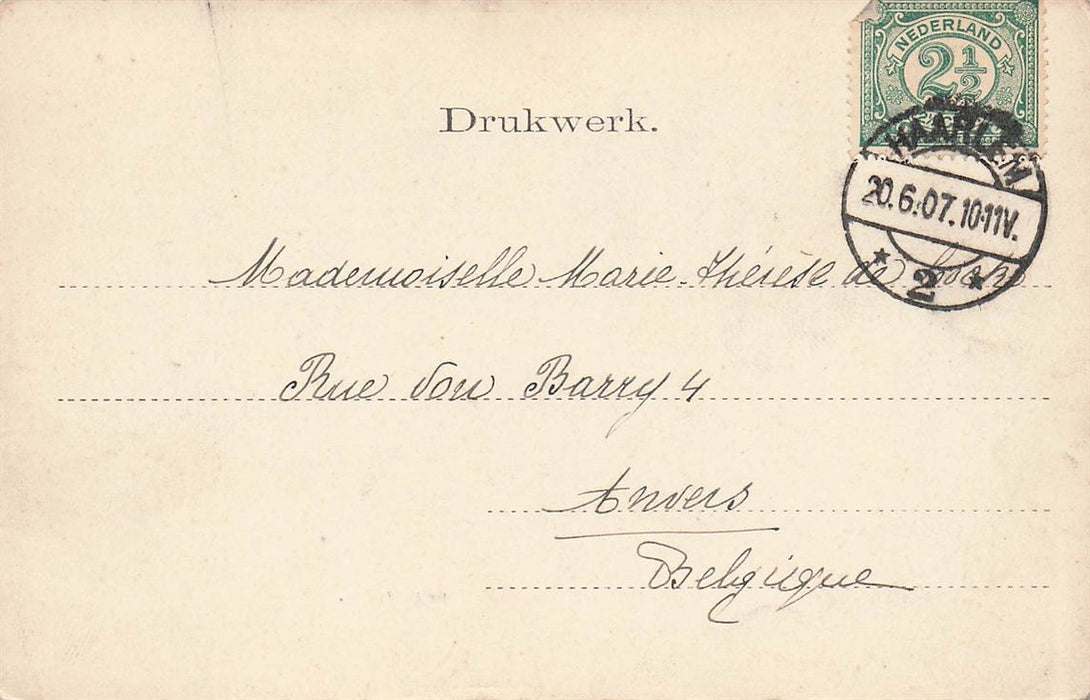 NEDERLAND
2½
Drukwerk.
HAARLEM
20.6.07.10-11V.
2
Mademoiselle Marie-Thérèse de
Rue von Barry 4
Anvers
Belgique